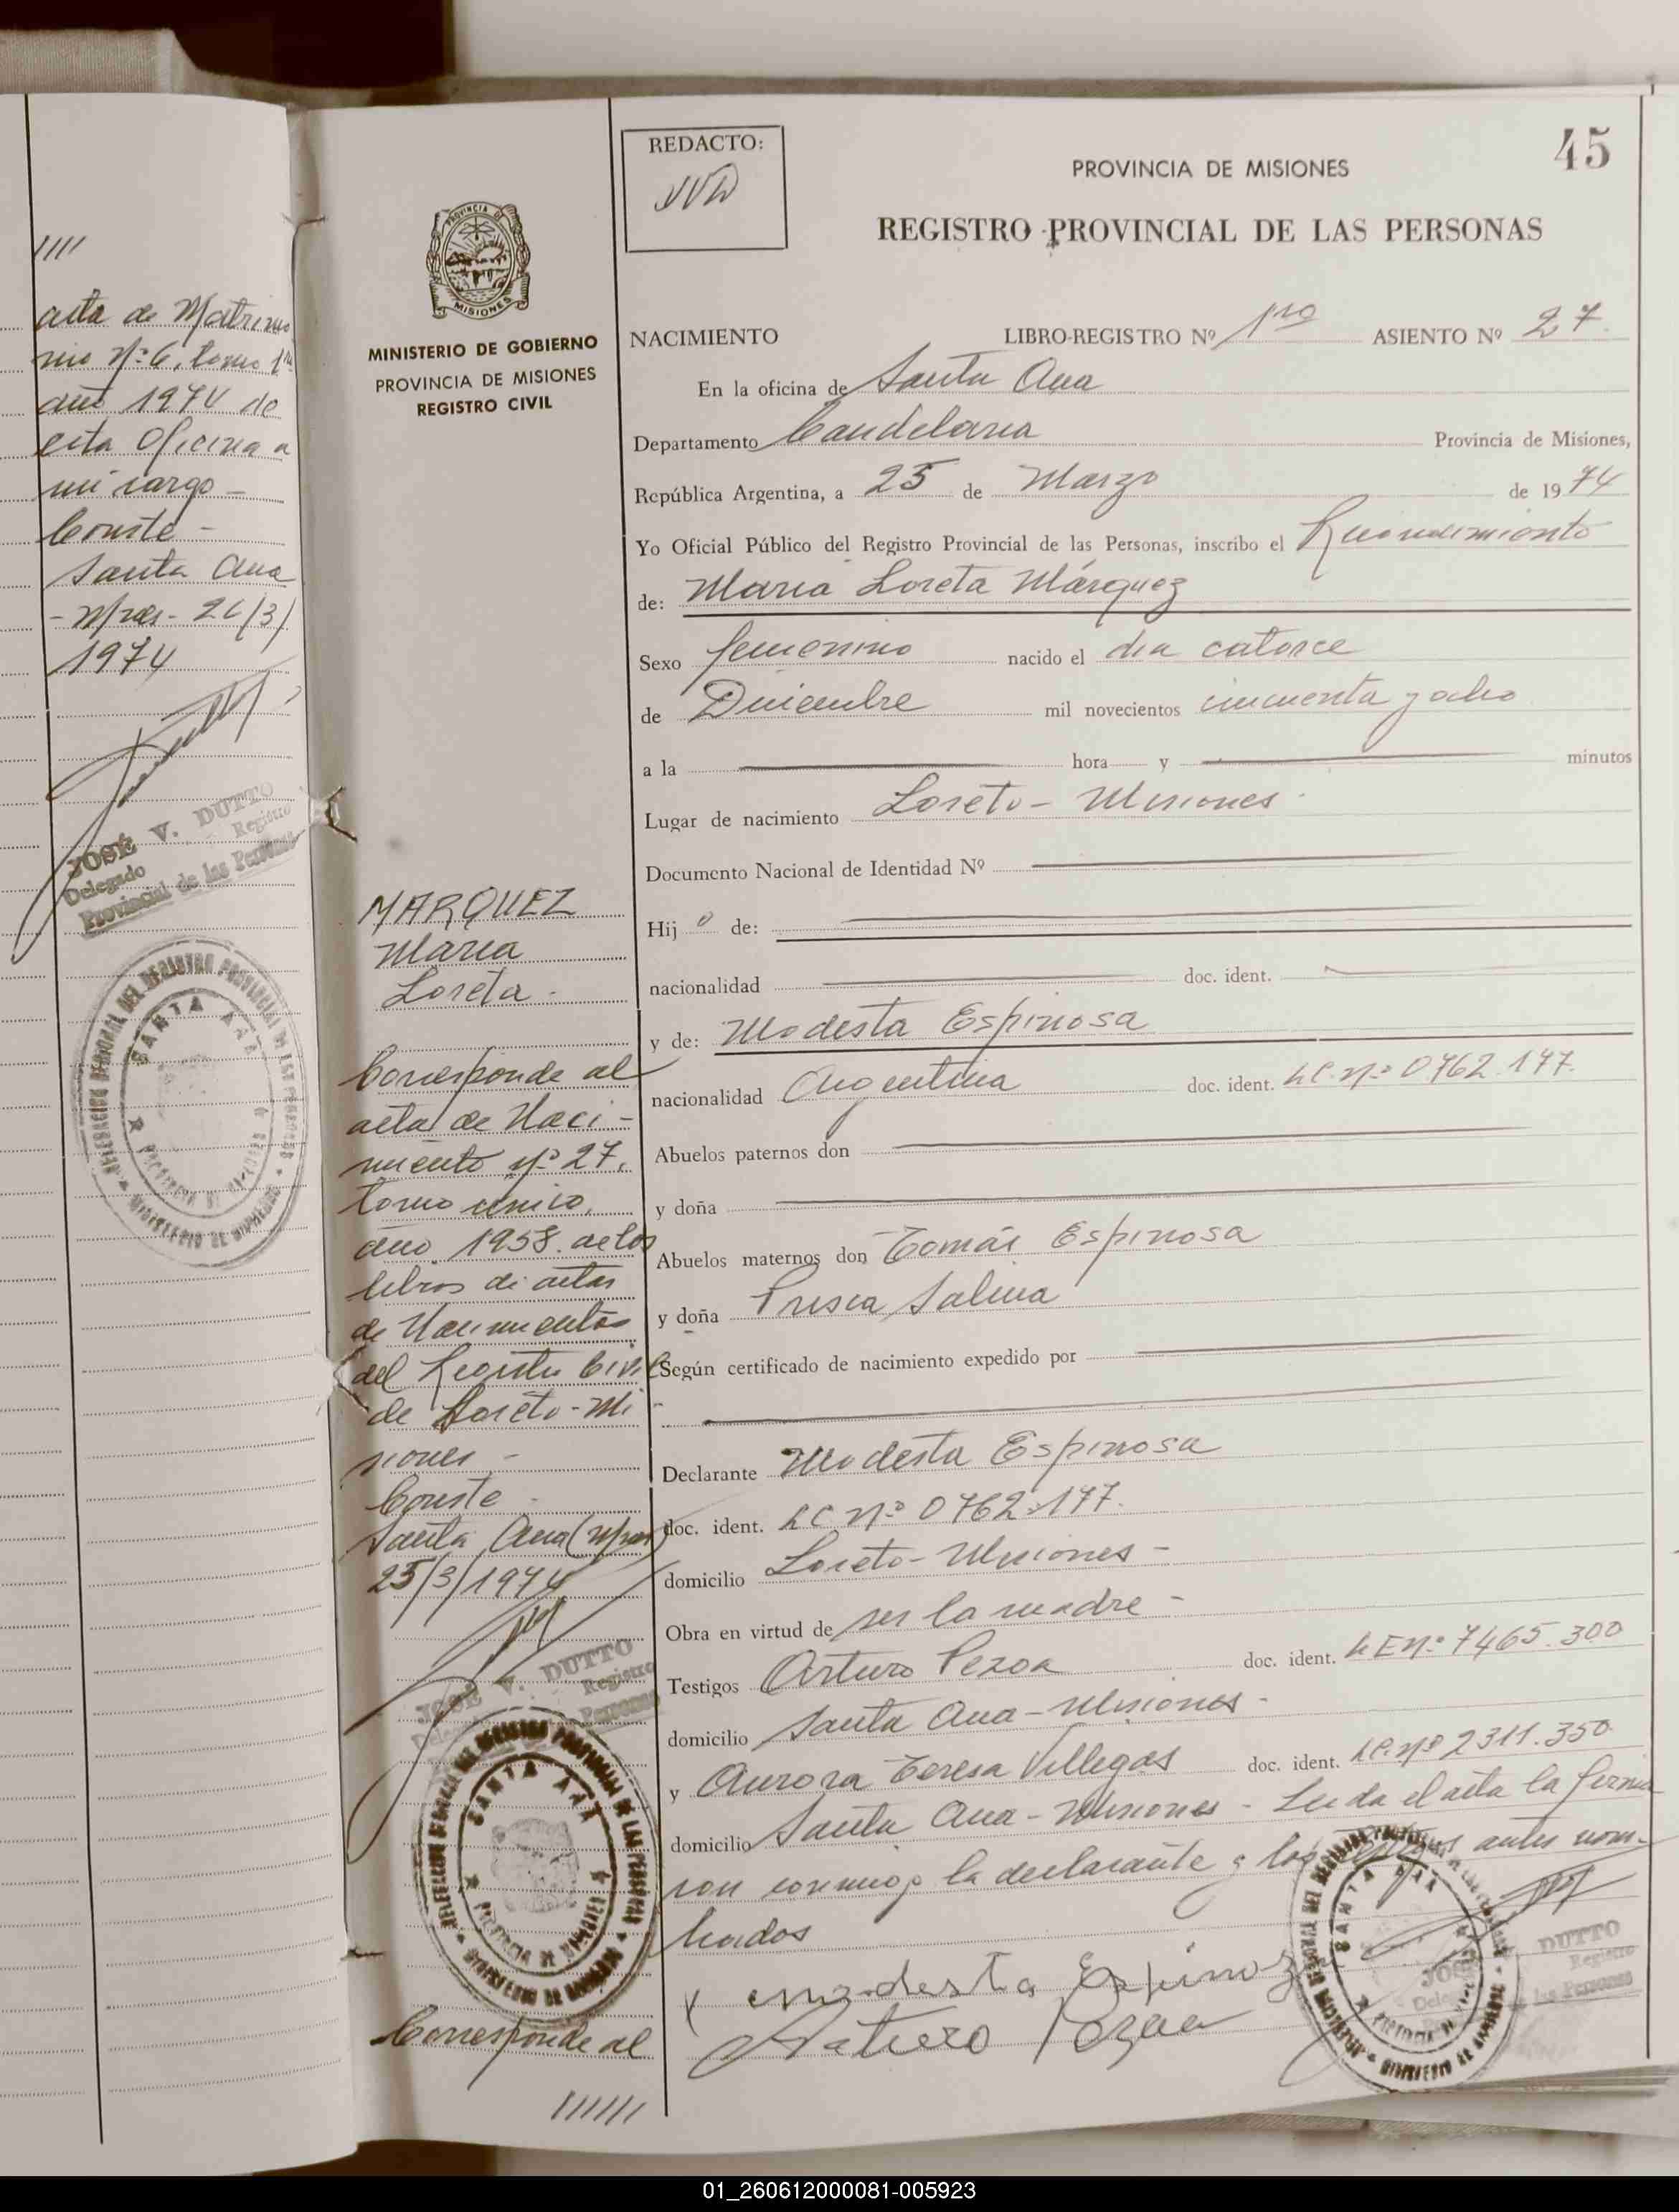 ////
acta de Matrimo
nio Nº 6, tomo 1ro
año 1974 de
esta Oficina a
mi cargo -
Conste -
Santa Ana
- Mnes - 26/3/
1974
JOSÉ V. DUTTO
Delegado Registro
Provincial de las Personas
DELEGACION REGIONAL DEL REGISTRO PROVINCIAL DE LAS PERSONAS
SANTA ANA
PROVINCIA DE MISIONES
MINISTERIO DE GOBIERNO
PROVINCIA DE
MISIONES
MINISTERIO DE GOBIERNO
PROVINCIA DE MISIONES
REGISTRO CIVIL
MARQUEZ
Maria
Loreta -
Corresponde al
acta de Naci-
miento nº 27,
tomo unico,
año 1958. de los
libros de actas
de Nacimientos
del Registro Civil
de Loreto - Mi
siones -
Conste -
Santa Ana (Mnes)
25/3/1974
JOSÉ V. DUTTO
Registro
Personas
DELEGACION REGIONAL DEL REGISTRO PROVINCIAL DE LAS PERSONAS
SANTA ANA
PROVINCIA DE MISIONES
MINISTERIO DE GOBIERNO
Corresponde al
//////
REDACTO:
45
PROVINCIA DE MISIONES
REGISTRO PROVINCIAL DE LAS PERSONAS
NACIMIENTO LIBRO-REGISTRO Nº 1ro ASIENTO Nº 27.
En la oficina de Santa Ana
Departamento Candelaria Provincia de Misiones,
República Argentina, a 25 de Marzo de 1974
Yo Oficial Público del Registro Provincial de las Personas, inscribo el Reconocimiento
de: Maria Loreta Márquez
Sexo femenino nacido el dia catorce
de Diciembre mil novecientos cincuenta y ocho
a la hora y minutos
Lugar de nacimiento Loreto - Misiones -
Documento Nacional de Identidad Nº
Hij o de:
nacionalidad doc. ident.
y de: Modesta Espinosa
nacionalidad Argentina doc. ident. LC. Nº 0762.177.
Abuelos paternos don
y doña
Abuelos maternos don Tomás Espinosa
y doña Prisca Salina
Según certificado de nacimiento expedido por
Declarante Modesta Espinosa
doc. ident. LC Nº 0762.177.
domicilio Loreto - Misiones -
Obra en virtud de ser la madre -
Testigos Arturo Pezoa doc. ident. LE Nº 7465.300
domicilio Santa Ana - Misiones -
y Aurora Teresa Villegas doc. ident. LC. Nº 2311.350
domicilio Santa Ana - Misiones - Leida el acta la firma
ron conmigo la declarante y los testigos antes nom-
brados
modesta Espinoza
Arturo Pezoa
SANTA ANA
PROVINCIA DE MISIONES
MINISTERIO DE GOBIERNO
JOSÉ DUTTO
Registro
las Personas
01_260612000081-005923